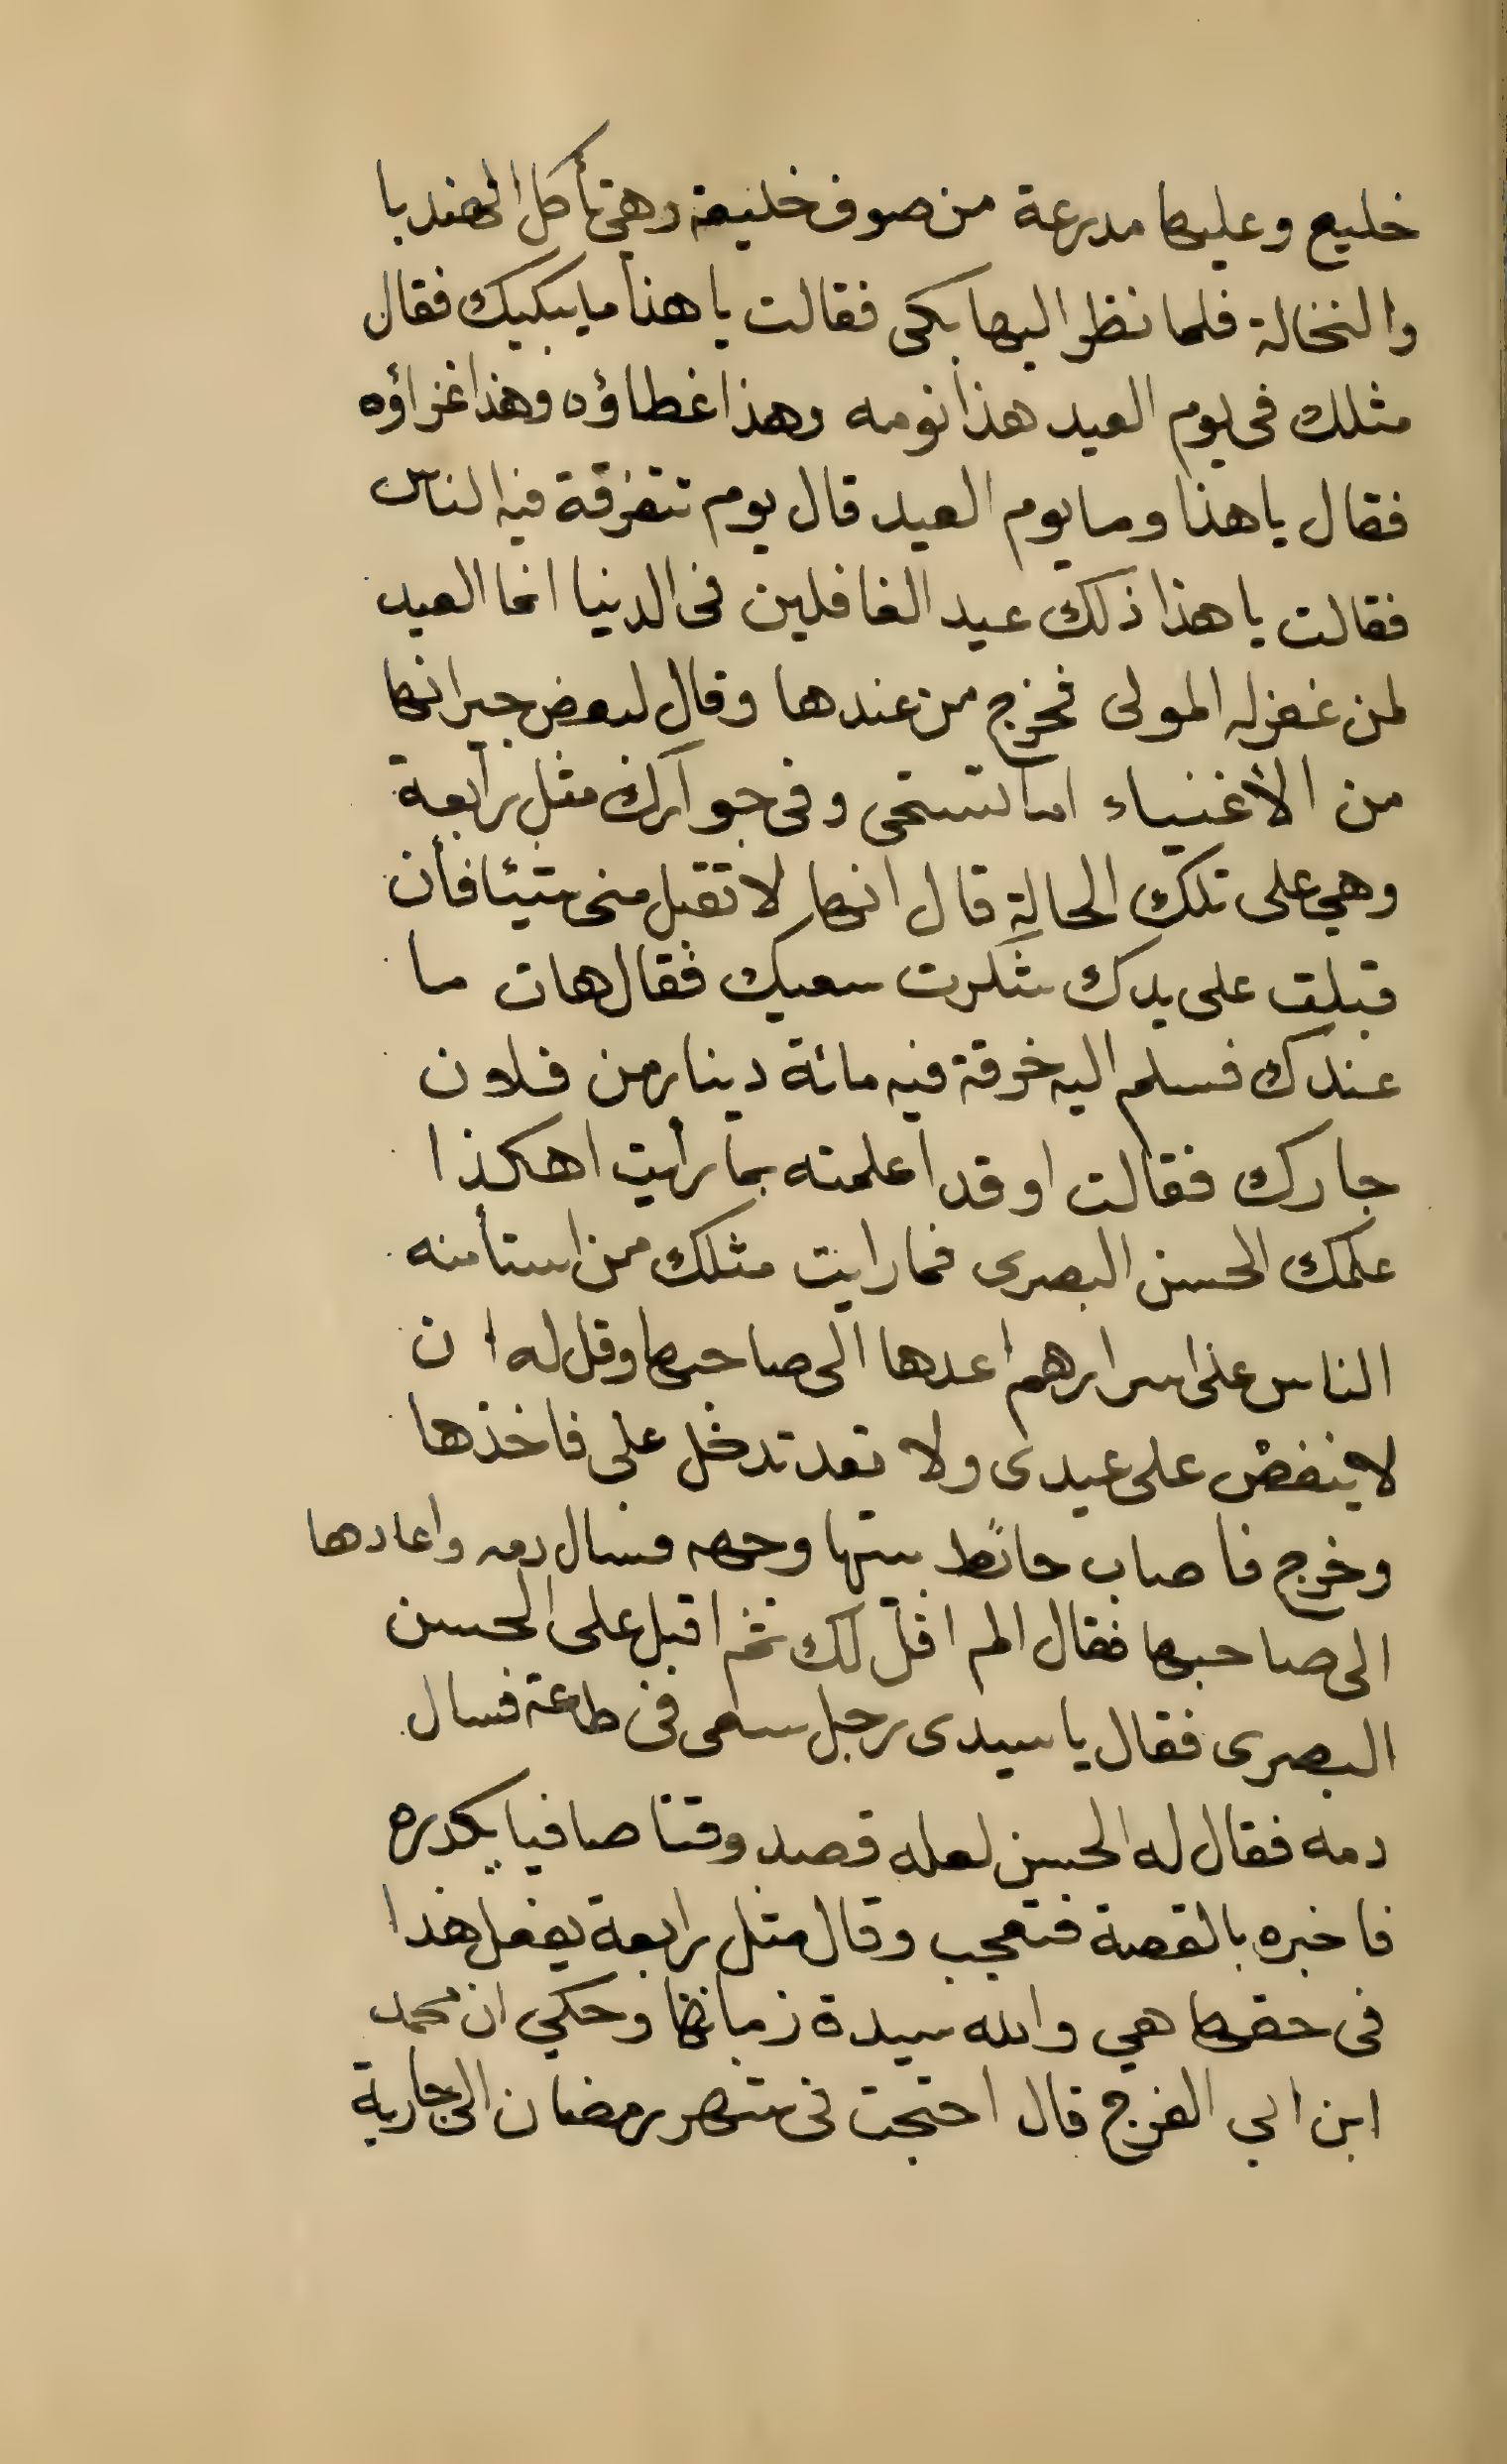 خليع وعليها مدرعة من صوف خليعة وهي تأكل الهندبا
والنخالة فلما نظر اليها بكى فقالت يا هذا ما يبكيك فقال
مثلك فى يوم العيد هذا نومه وهذا غطاؤه وهذا غزاؤه
فقال يا هذا وما يوم العيد قال يوم تتفرقة فيه الناس
فقالت يا هذا ذلك عيد الغافلين فى الدنيا انما العيد
لمن غفر له المولى فخرج من عندها وقال لبعض جيرانها
من الأغنياء اما تستحى وفى جوارك مثل رابعة
وهي على تلك الحالة قال انها لا تقبل منى شيئا فأن
قبلت على يدك شكرت سعيك فقال هات ما
عندك فسلم اليه خرقة فيه مائة دينار من فلان
جارك فقالت او قد اعلمته بما رأيت اهكذا
علمك الحسن البصرى فما رايت مثلك من استأمنه
الناس على اسرارهم اعدها الى صاحبها وقل له ان
لا ينغض على عيدى ولا تعد تدخل على فاخذها
وخرج فاصاب حائط بيتها وجهه فسال دمه واعادها
الى صاحبها فقال الم اقل لك ثم اقبل على الحسن
البصرى فقال يا سيدى رجل سعى فى طاعة فسال
دمه فقال له الحسن لعله قصد وقتا صافيا يكدره
فاخبره بالقصة فتعجب وقال مثل رابعة يفعل هذا
فى حقها هي والله سيدة زمانها وحكي ان محمد
ابن ابي الفرج قال احتجت فى شهر رمضان الى جارية